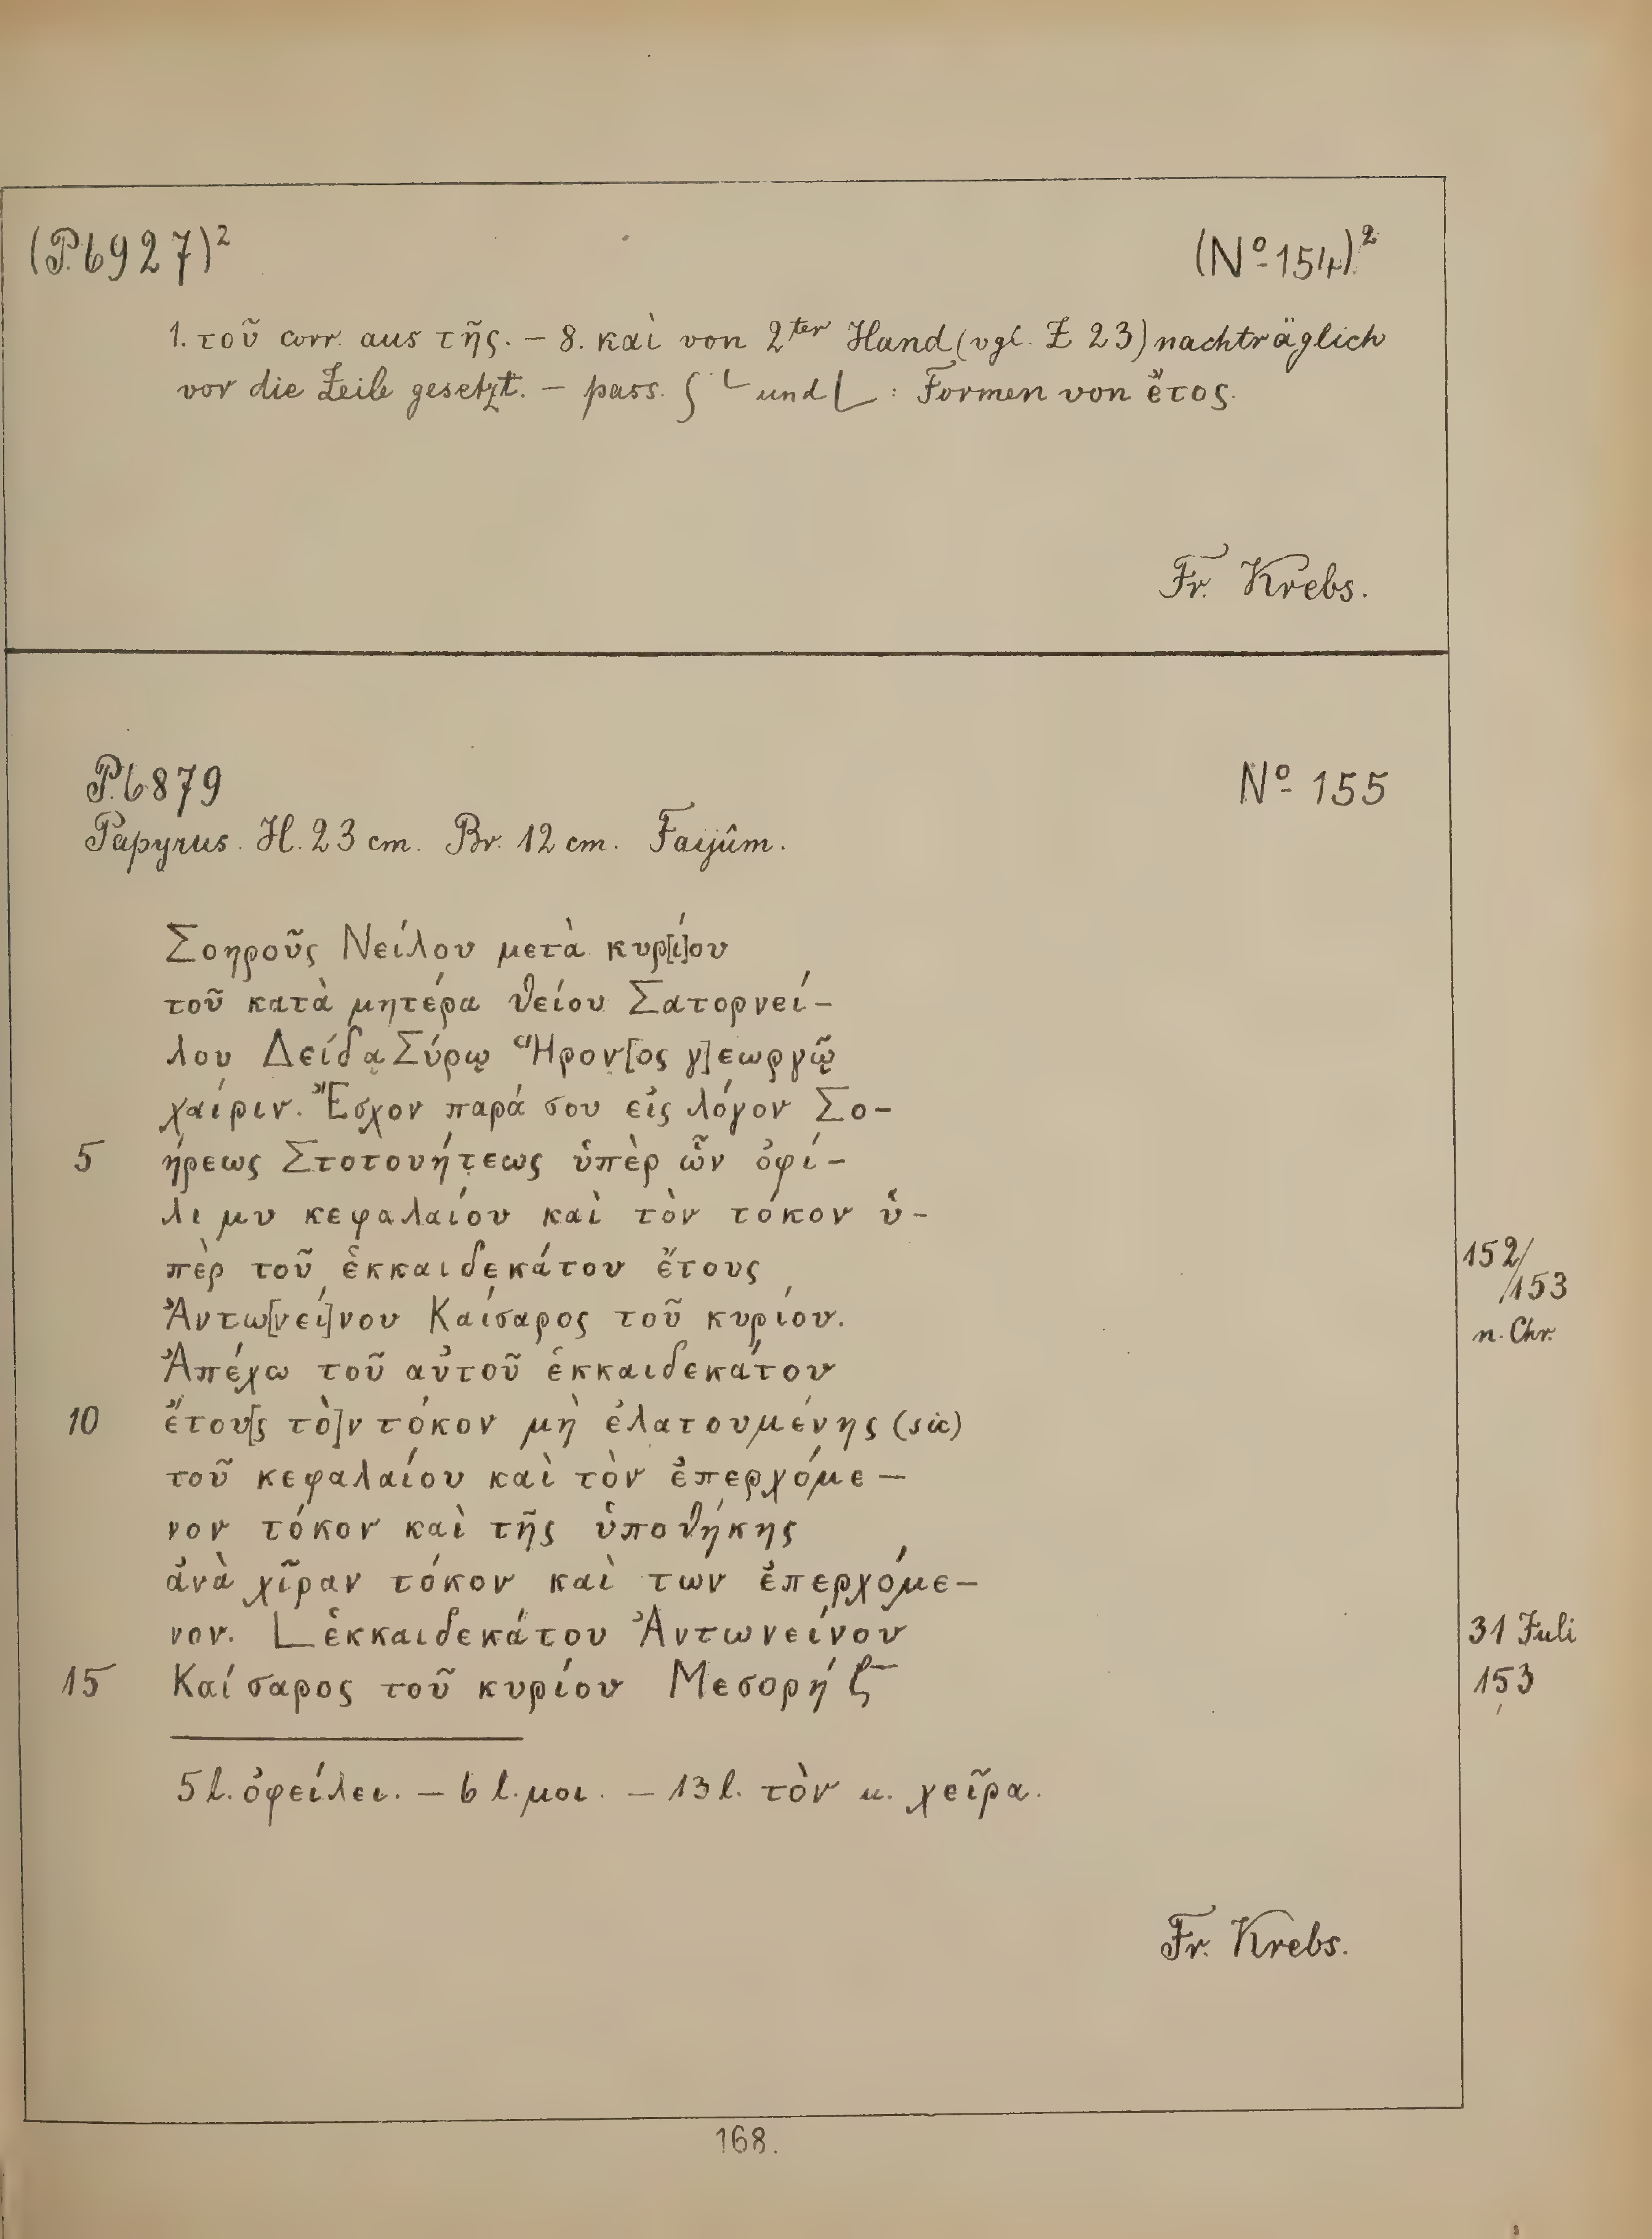 (P.6927)² (Nº 154)²
1. τοῦ corr. aus τῆς. – 8. καὶ von 2ter Hand (vgl. Z 23) nachträglich
vor die Zeile gesetzt. – pass. ʃ └ und L : Formen von ἔτος.
Fr. Krebs.
P.6879 Nº 155
Papyrus. H. 23 cm. Br. 12 cm. Faijûm.
Σοηροῦς Νείλου μετὰ κυρ[ί]ου
τοῦ κατὰ μητέρα θείου Σατορνεί–
λου Δείδᾳ Σύρῳ Ἥρον[ος γ]εωργῷ
χαίριν. Ἔσχον παρά σου εἰς λόγον Σο–
5 ήρεως Στοτουήτεως ὑπὲρ ὧν ὀφί–
λι μυ κεφαλαίου καὶ τὸν τόκον ὑ–
πὲρ τοῦ ἑκκαιδεκάτου ἔτους 152/153
Ἀντω[νεί]νου Καίσαρος τοῦ κυρίου. n. Chr.
Ἀπέχω τοῦ αὐτοῦ ἑκκαιδεκάτου
10 ἔτου[ς τὸ]ν τόκον μὴ ἐλατουμένης (sic)
τοῦ κεφαλαίου καὶ τὸν ἐπερχόμε–
νον τόκον καὶ τῆς ὑποθήκης
ἀνὰ χῖραν τόκον καὶ των ἐπερχόμε–
νον. L ἑκκαιδεκάτου Ἀντωνείνου 31 Juli
15 Καίσαρος τοῦ κυρίου Μεσορή ζ̅ 153
5 l. ὀφείλει. – 6 l. μοι. – 13 l. τὸν u. χεῖρα.
Fr. Krebs.
168.